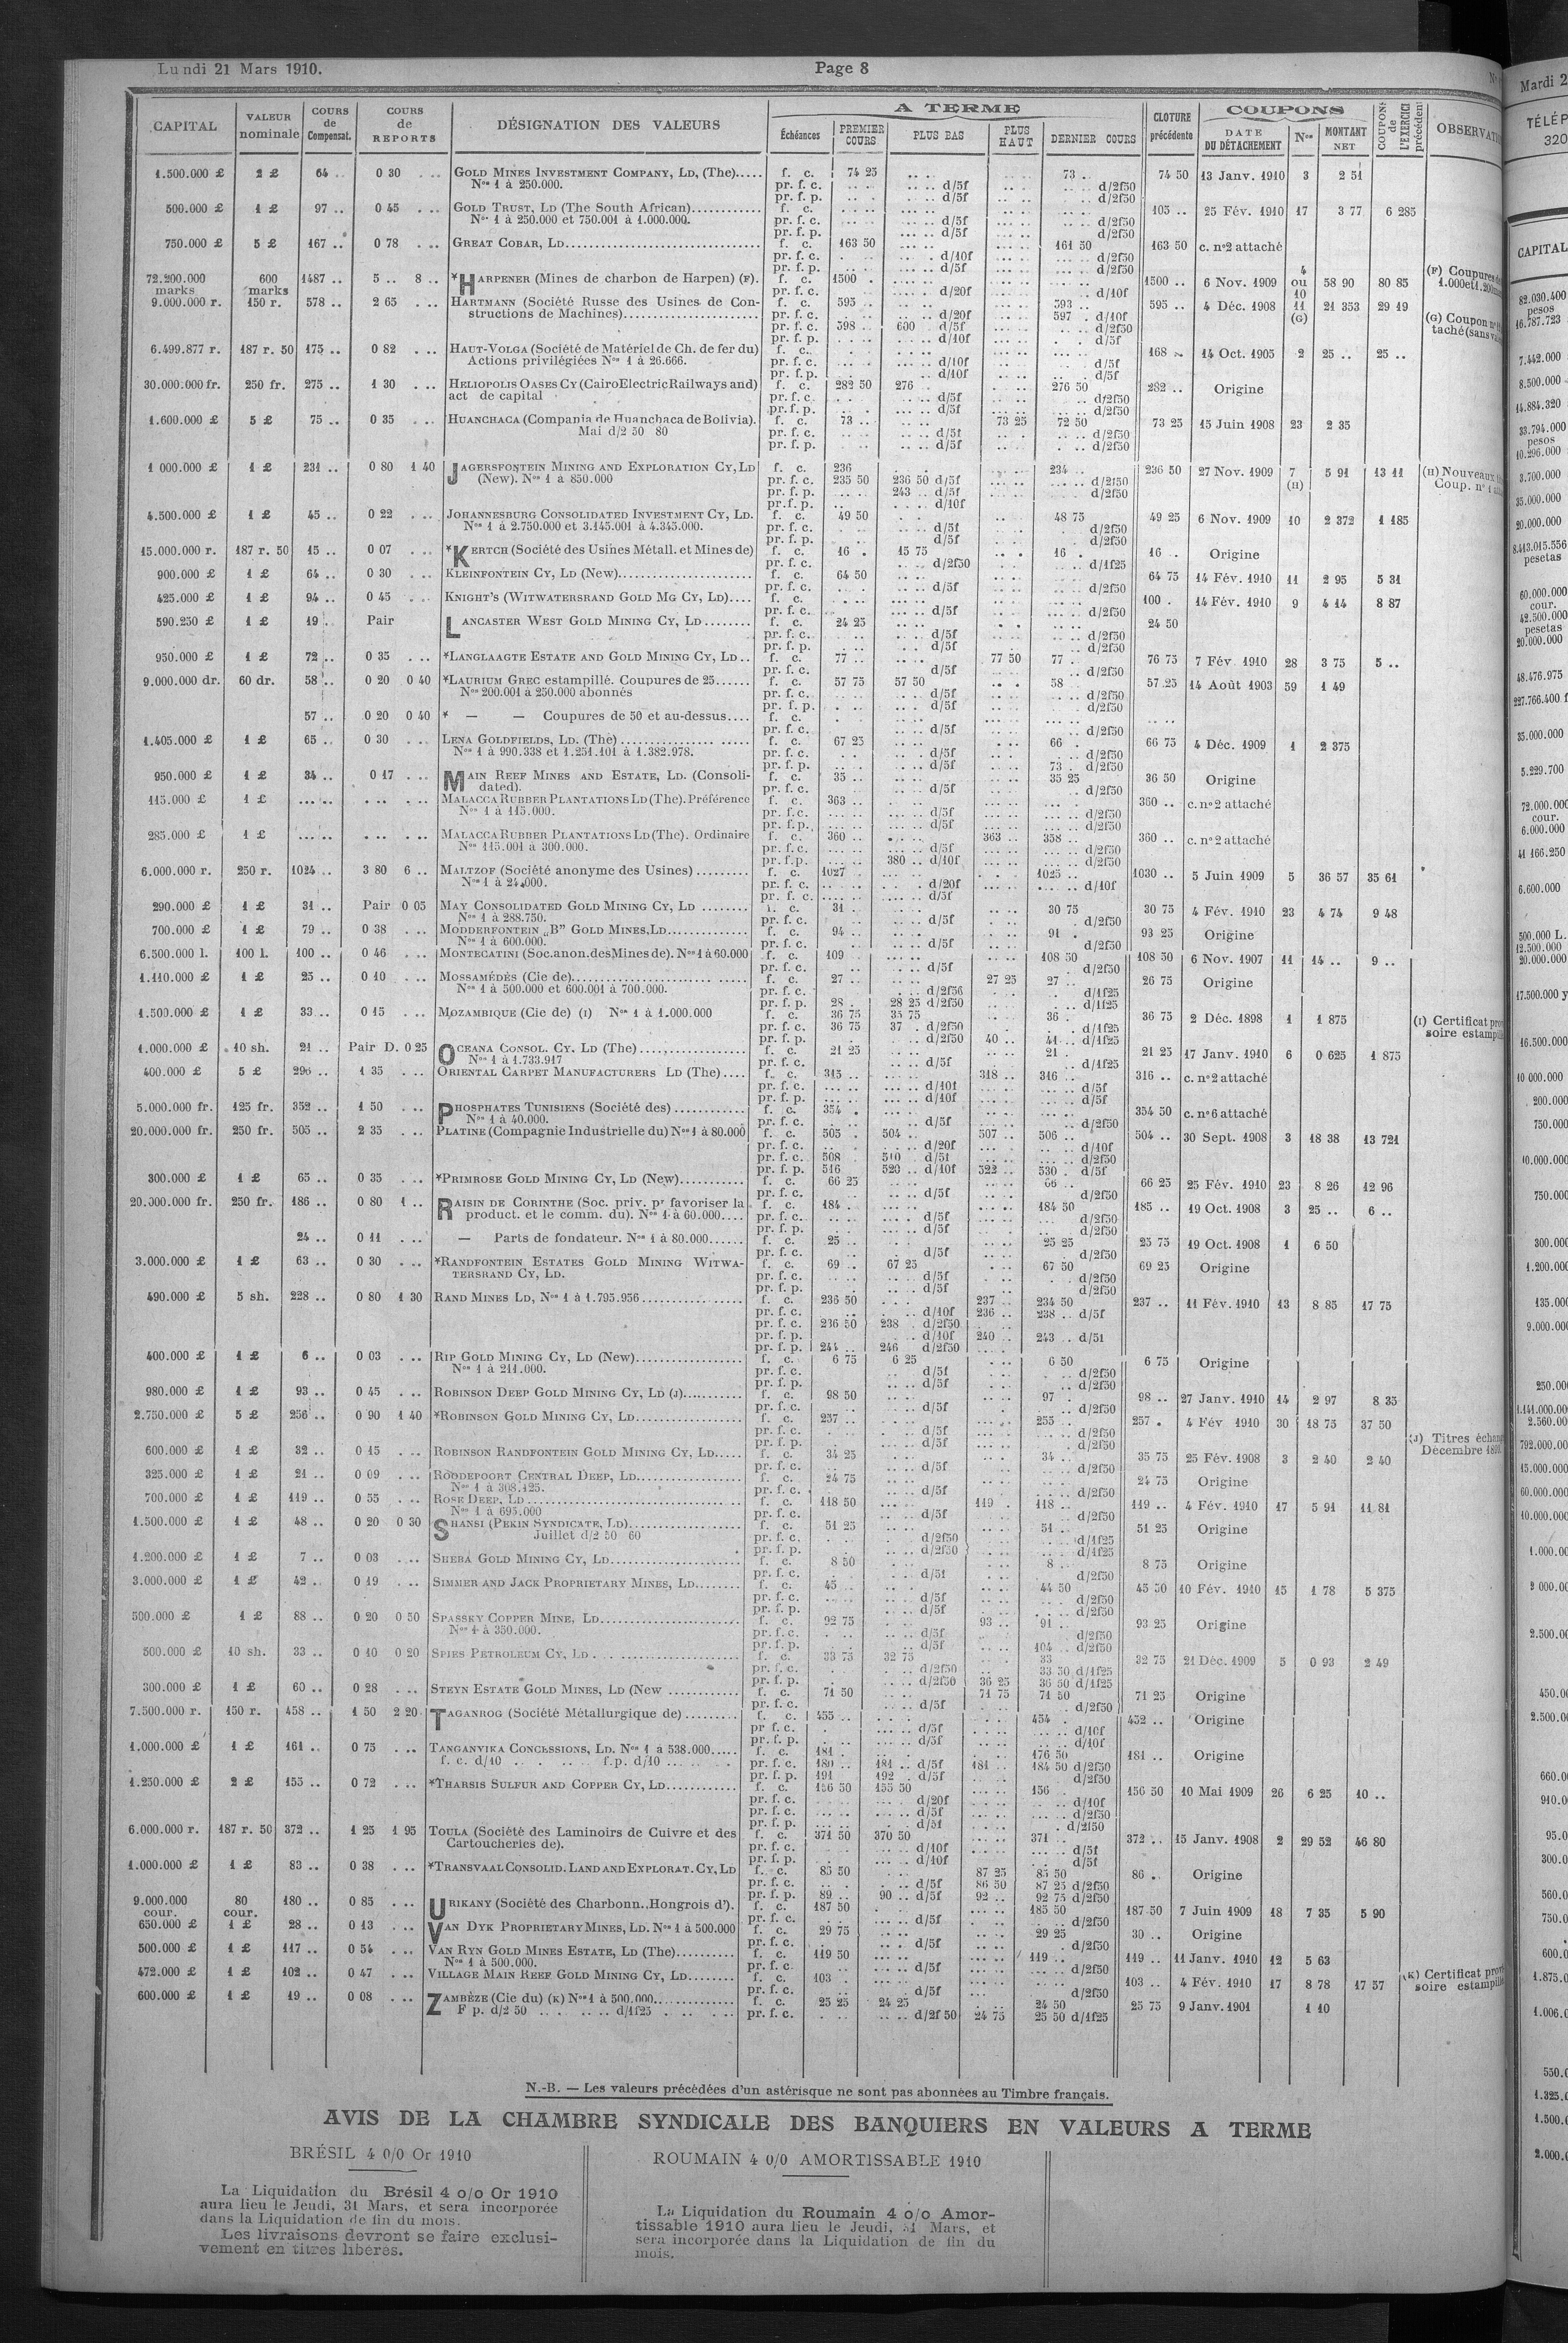 Lundi 21 Mars 1910.
Page 8
CAPITAL VALEUR nominale COURS de Compensat. COURS de REPORTS DÉSIGNATION DES VALEURS A TERME Échéances PREMIER COURS PLUS BAS PLUS HAUT DERNIER COURS CLOTURE précédente COUPONS DATE DU DÉTACHEMENT Nos MONTANT NET COUPONS de L'EXERCICE précédent
1.500.000 £ 2 £ 64 .. 0 30 GOLD MINES INVESTMENT COMPANY, LD, (The)..... f. c. 74 25 73 .. 74 50 13 Janv. 1910 3 2 51
Nos 1 à 250.000. pr. f. c. d/5f d/2f50
pr. f. p. d/5f d/2f50
500.000 £ 1 £ 97 .. 0 45 GOLD TRUST, LD (The South African)............ f. c. 105 .. 25 Fév. 1910 17 3 77 6 285
Nos 1 à 250.000 et 750.001 à 1.000.000. pr. f. c. d/5f d/2f50
pr. f. p. d/5f d/2f50
750.000 £ 5 £ 167 .. 0 78 GREAT COBAR, LD................................ f. c. 163 50 161 50 163 50 c. n°2 attaché
pr. f. c. d/10f d/2f50
pr. f. p. d/5f d/2f50
72.200.000 marks 600 marks 1487 .. 5 .. 8 .. *HARPENER (Mines de charbon de Harpen) (F). f. c. 1500 . 1500 .. 6 Nov. 1909 4 ou 10 58 90 80 85
pr. f. c. d/20f d/10f
9.000.000 r. 150 r. 578 .. 2 65 HARTMANN (Société Russe des Usines de Con- f. c. 595 .. 593 .. 595 .. 4 Déc. 1908 11 (G) 21 353 29 19
structions de Machines)....................... pr. f. c. d/20f 597 . d/10f
pr. f. c. 598 .. 600 . d/5f d/2f50
pr. f. p. d/10f d/5f
6.499.877 r. 187 r. 50 175 .. 0 82 HAUT-VOLGA (Société de Matériel de Ch. de fer du) f. c. 168 .. 14 Oct. 1905 2 25 .. 25 ..
Actions privilégiées Nos 1 à 26.666. pr. f. c. d/10f d/5f
pr. f. p. d/10f d/5f
30.000.000 fr. 250 fr. 275 .. 1 30 HELIOPOLIS OASES CY (Cairo Electric Railways and) f. c. 282 50 276 .. 276 50 282 .. Origine
act de capital pr. f. c. d/5f d/2f50
pr. f. p. d/5f d/2f50
1.600.000 £ 5 £ 75 .. 0 35 HUANCHACA (Compania de Huanchaca de Bolivia). f. c. 73 .. 73 25 72 50 73 25 15 Juin 1908 23 2 35
Mai d/2 50 80 pr. f. c. d/5f d/2f50
pr. f. p. d/5f d/2f50
1 000.000 £ 1 £ 231 .. 0 80 1 40 JAGERSFONTEIN MINING AND EXPLORATION CY, LD f. c. 236 234 .. 236 50 27 Nov. 1909 7 (H) 5 91 13 11
(New). Nos 1 à 850.000 pr. f. c. 235 50 236 50 d/5f d/2f50
pr. f. p. 243 .. d/5f d/2f50
pr. f. p. d/10f
4.500.000 £ 1 £ 45 .. 0 22 JOHANNESBURG CONSOLIDATED INVESTMENT CY, LD. f. c. 49 50 48 75 49 25 6 Nov. 1909 10 2 372 1 185
Nos 1 à 2.750.000 et 3.145.001 à 4.345.000. pr. f. c. d/5f d/2f50
pr. f. p. d/5f d/2f50
15.000.000 r. 187 r. 50 15 .. 0 07 *KERTCH (Société des Usines Métall. et Mines de) f. c. 16 . 15 75 16 . 16 .. Origine
pr. f. c. d/2f50 d/1f25
900.000 £ 1 £ 64 .. 0 30 KLEINFONTEIN CY, LD (New)....................... f. c. 64 50 64 75 14 Fév. 1910 11 2 95 5 31
pr. f. c. d/5f d/2f50
425.000 £ 1 £ 94 .. 0 45 KNIGHT'S (WITWATERSRAND GOLD MG CY, LD).... f. c. 100 . 14 Fév. 1910 9 4 14 8 87
pr. f. c. d/5f d/2f50
590.250 £ 1 £ 19 . Pair LANCASTER WEST GOLD MINING CY, LD........ f. c. 24 25 24 50
pr. f. c. d/5f d/2f50
pr. f. p. d/5f d/2f50
950.000 £ 1 £ 72 .. 0 35 *LANGLAAGTE ESTATE AND GOLD MINING CY, LD.. f. c. 77 .. 77 50 77 . 76 75 7 Fév 1910 28 3 75 5 ..
pr. f. c. d/5f d/2f50
9.000.000 dr. 60 dr. 58 .. 0 20 0 40 *LAURIUM GREC estampillé. Coupures de 25...... f. c. 57 75 57 50 58 .. 57 25 14 Août 1903 59 1 49
Nos 200.001 à 250.000 abonnés pr. f. c. d/5f d/2f50
pr. f. p. d/5f d/2f50
57 .. 0 20 0 40 * — — Coupures de 50 et au-dessus.... f. c.
pr. f. c. d/5f d/2f50
1.405.000 £ 1 £ 65 .. 0 30 LENA GOLDFIELDS, LD. (The) .................... f. c. 67 25 66 . 66 75 4 Déc. 1909 1 2 375
Nos 1 à 990.338 et 1.251.101 à 1.382.978. pr. f. c. d/5f d/2f50
pr. f. p. d/5f 73 . d/2f50
950.000 £ 1 £ 34 .. 0 17 MAIN REEF MINES AND ESTATE, LD. (Consoli- f. c. 35 .. 35 25 36 50 Origine
dated). pr. f. c. d/5f d/2f50
115.000 £ 1 £ MALACCA RUBBER PLANTATIONS LD (The). Préférence f. c. 363 .. 360 .. c. n°2 attaché
Nos 1 à 115.000. pr. f. c. d/5f d/2f50
pr. f. p. d/5f d/2f50
285.000 £ 1 £ MALACCA RUBBER PLANTATIONS LD (The). Ordinaire f. c. 360 .. 363 .. 358 .. 360 .. c. n°2 attaché
Nos 115.001 à 300.000. pr. f. c. d/5f d/2f50
pr. f. p. 380 .. d/10f d/2f50
6.000.000 r. 250 r. 1024 .. 3 80 6 .. MALTZOF (Société anonyme des Usines) ......... f. c. 1027 1025 .. 1030 .. 5 Juin 1909 5 36 57 35 61
Nos 1 à 24.000. pr. f. c. d/20f d/10f
pr. f. c. d/5f
290.000 £ 1 £ 31 .. Pair 0 05 MAY CONSOLIDATED GOLD MINING CY, LD ........ f. c. 31 .. 30 75 30 75 4 Fév. 1910 23 4 74 9 48
Nos 1 à 288.750. pr. f. c. d/5f d/2f50
700.000 £ 1 £ 79 .. 0 38 MODDERFONTEIN „B” GOLD MINES, LD............. f. c. 94 .. 91 . 93 25 Origine
Nos 1 à 600.000. pr. f. c. d/5f d/2f50
6.500.000 l. 100 l. 100 .. 0 46 MONTECATINI (Soc. anon. des Mines de). Nos 1 à 60.000 f. c. 109 108 50 108 50 6 Nov. 1907 11 14 .. 9 ..
pr. f. c. d/5f d/2f50
1.110.000 £ 1 £ 25 .. 0 10 MOSSAMÉDÈS (Cie de)............................ f. c. 27 .. 27 25 27 .. 26 75 Origine
Nos 1 à 500.000 et 600.001 à 700.000. pr. f. c. d/2f50 d/1f25
pr. f. p. 28 . 28 25 d/2f50 d/1f25
1.500.000 £ 1 £ 33 .. 0 15 MOZAMBIQUE (Cie de) (I) Nos 1 à 1.000.000 f. c. 36 75 35 75 36 . 36 75 2 Déc. 1898 1 1 875
pr. f. c. 36 75 37 . d/2f50 d/1f25
pr. f. p. d/2f50 40 .. 41 .. d/1f25
1.000.000 £ 10 sh. 21 .. Pair D. 0 25 OCEANA CONSOL. CY. LD (The)................. f. c. 21 25 21 . 21 25 17 Janv. 1910 6 0 625 1 875
Nos 1 à 1.733.917 pr. f. c. d/5f d/1f25
400.000 £ 5 £ 296 .. 1 35 ORIENTAL CARPET MANUFACTURERS LD (The).... f. c. 315 .. 318 .. 316 .. 316 .. c. n°2 attaché
pr. f. c. d/10f d/5f
pr. f. p. d/10f d/5f
5.000.000 fr. 125 fr. 352 .. 1 50 PHOSPHATES TUNISIENS (Société des)............ f. c. 354 . 354 50 c. n°6 attaché
Nos 1 à 40.000. pr. f. c. d/5f d/2f50
20.000.000 fr. 250 fr. 505 .. 2 35 PLATINE (Compagnie Industrielle du) Nos 1 à 80.000 f. c. 505 . 504 .. 507 .. 506 .. 504 .. 30 Sept. 1908 3 18 38 13 721
pr. f. c. d/20f d/10f
pr. f. c. 508 . 510 . d/5f d/2f50
pr. f. p. 516 520 .. d/10f 522 .. 530 . d/5f
300.000 £ 1 £ 65 .. 0 35 *PRIMROSE GOLD MINING CY, LD (New)........... f. c. 66 25 66 .. 66 25 25 Fév. 1910 23 8 26 12 96
pr. f. c. d/5f d/2f50
20.000.000 fr. 250 fr. 186 .. 0 80 1 .. RAISIN DE CORINTHE (Soc. priv. pr favoriser la f. c. 184 . 184 50 185 .. 19 Oct. 1908 3 25 .. 6 ..
product. et le comm. du). Nos 1 à 60.000.... pr. f. c. d/5f d/2f50
pr. f. p. d/5f d/2f50
24 .. 0 11 — Parts de fondateur. Nos 1 à 80.000...... f. c. 25 .. 25 25 25 75 19 Oct. 1908 1 6 50
pr. f. c. d/5f d/2f50
3.000.000 £ 1 £ 63 .. 0 30 *RANDFONTEIN ESTATES GOLD MINING WITWA- f. c. 69 .. 67 25 67 50 69 25 Origine
TERSRAND CY, LD. pr. f. c. d/5f d/2f50
pr. f. p. d/5f d/2f50
490.000 £ 5 sh. 228 .. 0 80 1 30 RAND MINES LD, Nos 1 à 1.795.956................ f. c. 236 50 237 .. 234 50 237 .. 11 Fév. 1910 13 8 85 17 75
pr. f. c. d/10f 236 .. 238 .. d/5f
pr. f. c. 236 50 238 . d/2f50
pr. f. p. d/10f 240 .. 243 .. d/5f
pr. f. p. 244 .. 246 d/2f50
400.000 £ 1 £ 6 .. 0 03 RIP GOLD MINING CY, LD (New).................. f. c. 6 75 6 25 6 50 6 75 Origine
Nos 1 à 211.000. pr. f. c. d/5f d/2f50
pr. f. p. d/5f d/2f50
980.000 £ 1 £ 93 .. 0 45 ROBINSON DEEP GOLD MINING CY, LD (J).......... f. c. 98 50 97 . 98 .. 27 Janv. 1910 14 2 97 8 35
pr. f. c. d/5f d/2f50
2.750.000 £ 5 £ 256 .. 0 90 1 40 *ROBINSON GOLD MINING CY, LD.................. f. c. 257 .. 255 .. 257 . 4 Fév 1910 30 18 75 37 50
pr. f. c. d/5f d/2f50
pr. f. p. d/5f d/2f50
600.000 £ 1 £ 32 .. 0 15 ROBINSON RANDFONTEIN GOLD MINING CY, LD..... f. c. 34 25 34 .. 35 75 25 Fév. 1908 3 2 40 2 40
pr. f. c. d/5f d/2f50
325.000 £ 1 £ 21 .. 0 09 ROODEPOORT CENTRAL DEEP, LD................. f. c. 24 75 24 75 Origine
Nos 1 à 308.125. pr. f. c. d/5f d/2f50
700.000 £ 1 £ 119 .. 0 55 ROSE DEEP, LD.................................. f. c. 118 50 119 . 118 .. 119 .. 4 Fév. 1910 17 5 91 11 81
Nos 1 à 695.000 pr. f. c. d/5f d/2f50
1.500.000 £ 1 £ 48 .. 0 20 0 30 SHANSI (PEKIN SYNDICATE, LD).................. f. c. 51 25 51 .. 51 25 Origine
Juillet d/2 50 60 pr. f. c. d/2f50 d/1f25
pr. f. p. d/2f50 d/1f25
1.200.000 £ 1 £ 7 .. 0 03 SHEBA GOLD MINING CY, LD...................... f. c. 8 50 8 .. 8 75 Origine
pr. f. c. d/5f d/2f50
3.000.000 £ 1 £ 42 .. 0 19 SIMMER AND JACK PROPRIETARY MINES, LD........ f. c. 45 .. 44 50 45 50 10 Fév. 1910 15 1 78 5 375
pr. f. c. d/5f d/2f50
pr. f. p. d/5f d/2f50
500.000 £ 1 £ 88 .. 0 20 0 50 SPASSKY COPPER MINE, LD........................ f. c. 92 75 93 .. 91 .. 93 25 Origine
Nos 1 à 350.000. pr. f. c. d/5f d/2f50
pr. f. p. d/5f 104 .. d/2f50
500.000 £ 10 sh. 33 .. 0 10 0 20 SPIES PETROLEUM CY, LD........................ f. c. 33 75 32 75 33 32 75 21 Déc. 1909 5 0 93 2 49
pr. f. c. d/2f50 33 50 d/1f25
pr. f. p. d/2f50 36 25 36 50 d/1f25
300.000 £ 1 £ 60 .. 0 28 STEYN ESTATE GOLD MINES, LD (New ............ f. c. 71 50 71 75 71 50 71 25 Origine
pr. f. c. d/5f d/2f50
7.500.000 r. 150 r. 458 .. 1 50 2 20 TAGANROG (Société Métallurgique de) ......... f. c. 455 .. 454 . 452 .. Origine
pr. f. c. d/5f d/10f
pr. f. p. d/5f d/10f
1.000.000 £ 1 £ 161 .. 0 75 TANGANYIKA CONCESSIONS, LD. Nos 1 à 538.000..... f. c. 181 . 176 50 181 .. Origine
f. c. d/10 f.p. d/10 pr. f. c. 180 .. 181 .. d/5f 181 .. 184 50 d/2f50
pr. f. p. 191 192 . d/5f d/2f50
1.250.000 £ 2 £ 155 .. 0 72 *THARSIS SULFUR AND COPPER CY, LD............ f. c. 156 50 155 50 156 .. 156 50 10 Mai 1909 26 6 25 10 ..
pr. f. c. d/20f d/10f
pr. f. c. d/5f d/2f50
pr. f. p. d/5f d/2f50
6.000.000 r. 187 r. 50 372 .. 1 25 1 95 TOULA (Société des Laminoirs de Cuivre et des f. c. 371 50 370 50 371 .. 372 .. 15 Janv. 1908 2 29 52 46 80
Cartoucheries de). pr. f. c. d/10f d/5f
pr. f. p. d/10f d/5f
1.000.000 £ 1 £ 83 .. 0 38 *TRANSVAAL CONSOLID. LAND AND EXPLORAT. CY, LD f. c. 85 50 87 25 85 50 86 .. Origine
pr. f. c. d/5f 86 50 87 25 d/2f50
pr. f. p. 89 .. 90 .. d/5f 92 .. 92 75 d/2f50
9.000.000 cour. 80 cour. 180 .. 0 85 URIKANY (Société des Charbonn., Hongrois d'). f. c. 187 50 185 50 187 50 7 Juin 1909 18 7 35 5 90
pr. f. c. d/5f d/2f50
650.000 £ 1 £ 28 .. 0 13 VAN DYK PROPRIETARY MINES, LD. Nos 1 à 500.000 f. c. 29 75 29 25 30 .. Origine
pr. f. c. d/5f d/2f50
500.000 £ 1 £ 117 .. 0 54 VAN RYN GOLD MINES ESTATE, LD (The).......... f. c. 119 50 119 .. 119 .. 11 Janv. 1910 12 5 63
Nos 1 à 500.000. pr. f. c. d/5f d/2f50
472.000 £ 1 £ 102 .. 0 47 VILLAGE MAIN REEF GOLD MINING CY, LD........ f. c. 103 . 103 .. 4 Fév. 1910 17 8 78 17 57
pr. f. c. d/5f d/2f50
600.000 £ 1 £ 19 .. 0 08 ZAMBÈZE (Cie du) (K) Nos 1 à 500.000............. f. c. 25 25 24 25 24 50 25 75 9 Janv. 1901 1 10
F p. d/2 50 d/1f25 pr. f. c. d/2f 50 24 75 25 50 d/1f25
(F) Coupures
(G) Coupon
(H) Nouveaux
Coup. n° 1
(I) Certificat
soire
(J) Titres
Décembre
(K) Certificat
soire
N.-B. — Les valeurs précédées d'un astérisque ne sont pas abonnées au Timbre français.
AVIS DE LA CHAMBRE SYNDICALE DES BANQUIERS EN VALEURS A TERME
BRÉSIL 4 0/0 Or 1910
La Liquidation du Brésil 4 o/o Or 1910
aura lieu le Jeudi, 31 Mars, et sera incorporée
dans la Liquidation de fin du mois.
Les livraisons devront se faire exclusi-
vement en titres libérés.
ROUMAIN 4 0/0 AMORTISSABLE 1910
La Liquidation du Roumain 4 o/o Amor-
tissable 1910 aura lieu le Jeudi, 31 Mars, et
sera incorporée dans la Liquidation de fin du
mois.
Mardi
CAPITAL
82.030.400
pesos
16.787.723
7.442.000
8.500.000
14.884.320
33.794.000
pesos
10.296.000
3.700.000
35.000.000
20.000.000
8.413.015.556
pesetas
60.000.000
cour.
42.500.000
pesetas
20.000.000
48.476.975
227.766.400
35.000.000
5.229.700
72.000.000
cour.
6.000.000
41 166.250
6.600.000
500.000 L.
12.500.000
20.000.000
17.500.000
16.500.000
10 000.000